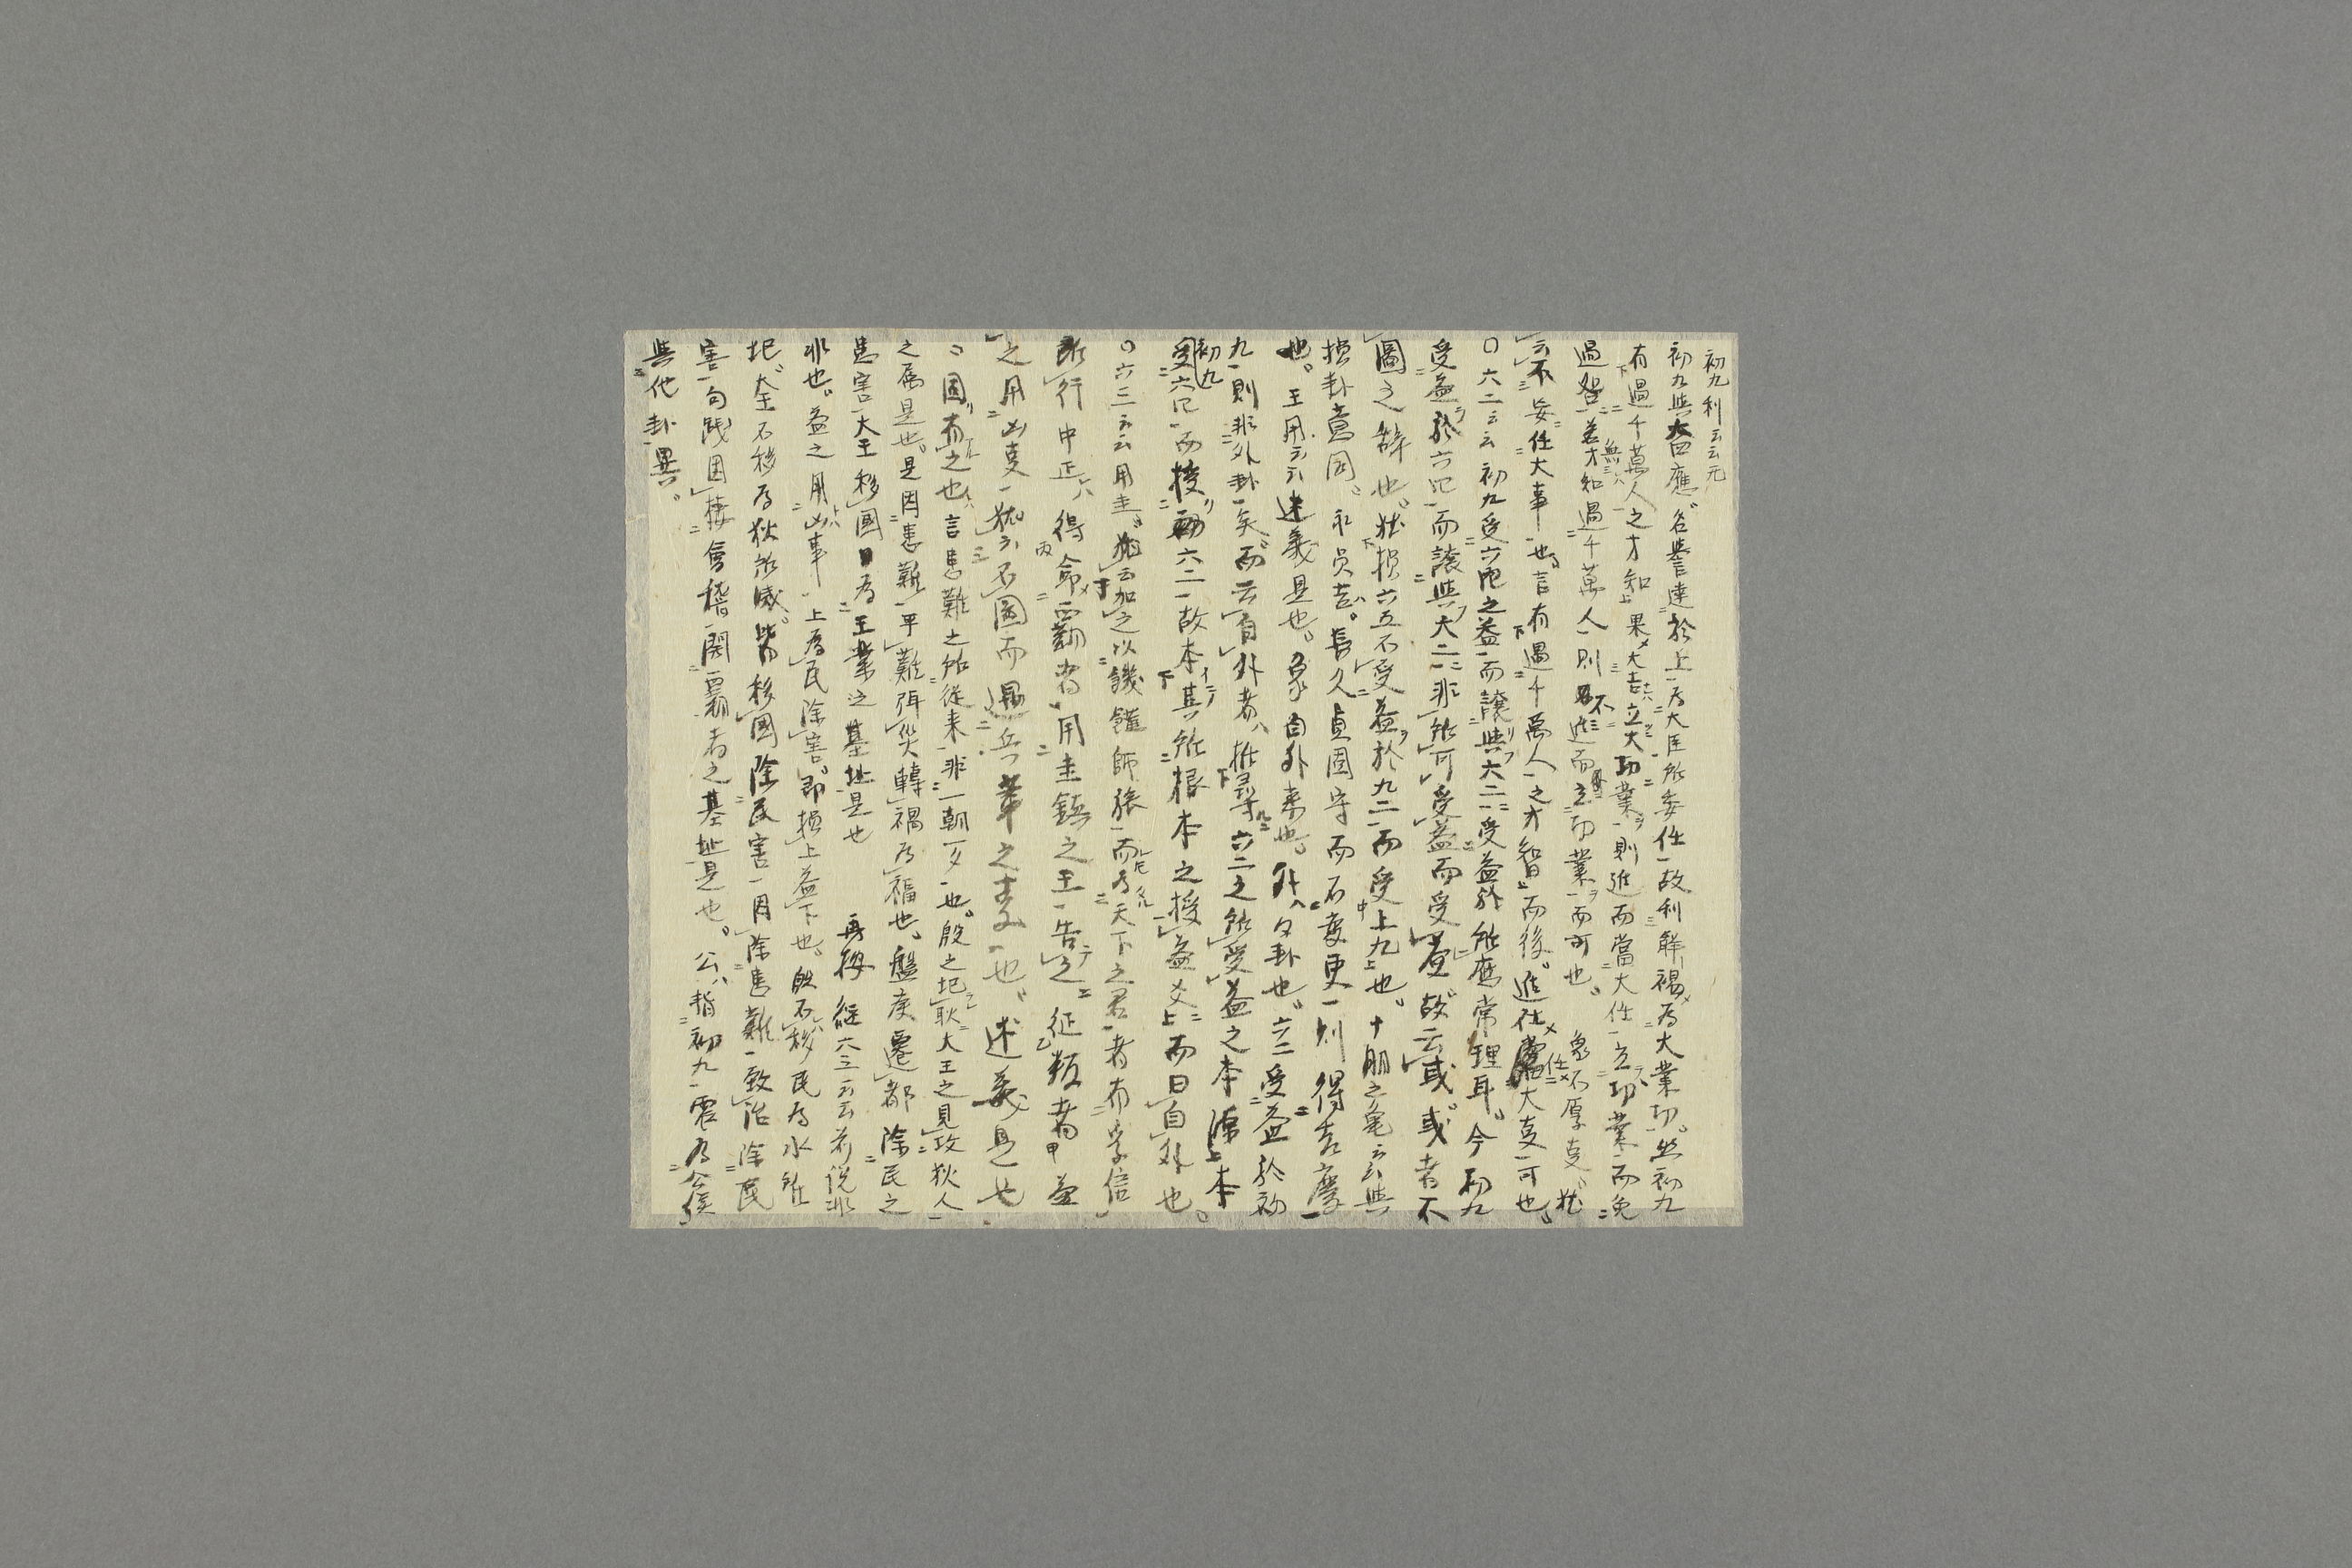 初九利云云元
初九與六四應。名譽達於上為大臣所委任故利解褐為大業切。然初九
有過千萬人之才知果大吉立大功業則進而當大任立功業而免
過咎若才知無過千萬人則不進而立功業而可也。象不厚事猶
云不妄任大事也言有過千萬人之才智而後進仕任大事可也。
〇六二云云初九受六四之益而讓與六二受益於所應常理耳。今初九
受益於六四而讓與六二非所可受益而受益故云或。或者不
圖之辭也。猶損六五不受益於九二而受上九也。十朋之龜云云與
損卦意同。永貞吉。長久貞固守而不變更則得吉慶
也。王用云云述義是也。象自外来也。外ハ外卦也。六二受益於初
九則非外卦矣。而云自外者ハ推尋六二之所受益之本源本
初九受六四而授六二故本其所根本之授益爻而曰自外也。
〇六三云云用圭。猶云加之以饑饉師旅而為天下之君者有孚信
所行中正ハ得命霸者用圭鎮之王告之征叛者益
之用凶事猶云不圖而遇兵革之事也。述義是也
〇固有之也ハ言患難之所從来非一朝一夕也。殷之圮耿大王之見攻狄人
之属是也。是因患難平難弭災轉禍為福也。盤庚遷都除民之
患害大王移國為王業之基址是也 再按 經六三云云前説非
非也。益之用凶事上為民除害即損上益下也。殷不移民為水所
圮大王不移為狄所滅皆移國除民害因除患難致治除民
害句踐因棲會稽開霸者之基址是也。公ハ指初九震為公侯
與他卦異。